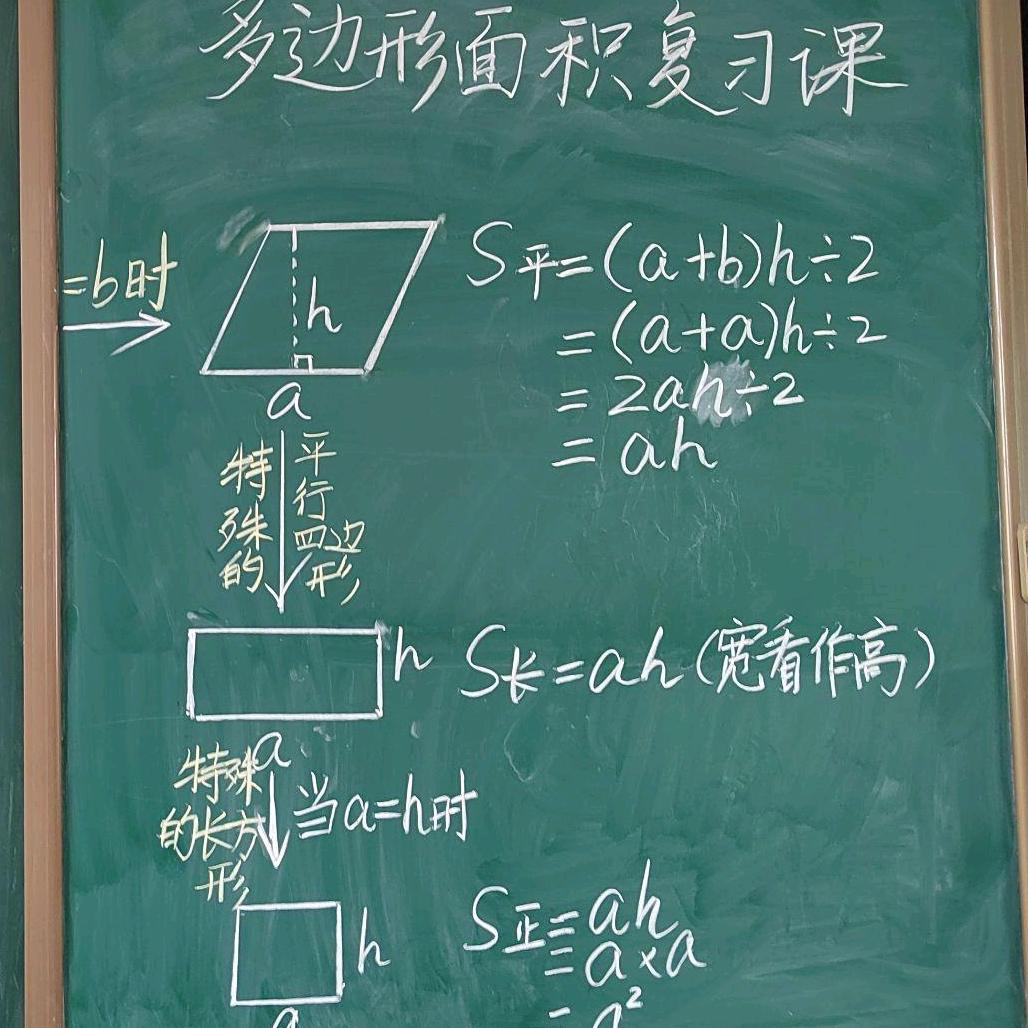 多边形面积复习课
=b时
h
a
S平=(a+b)h÷2
=(a+a)h÷2
=2ah÷2
=ah
特殊的
平行四边形
h
a
S长=ah(宽看作高)
特殊的长方形
当a=h时
h
a
S正=ah
=a×a
=a²